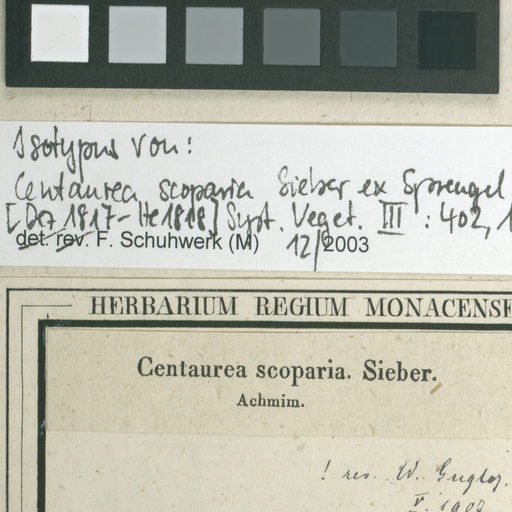 Isotypus von:
Centaurea scoparia Sieber ex Sprengel
[Dez 1817- 1818] Syst. Veget. III : 402, 1
det. rev. F. Schuhwerk (M) 12/2003
HERBARIUM REGIUM MONACENSE
Centaurea scoparia. Sieber.
Achmim.
! rev. W. Gugler.
V. 1907